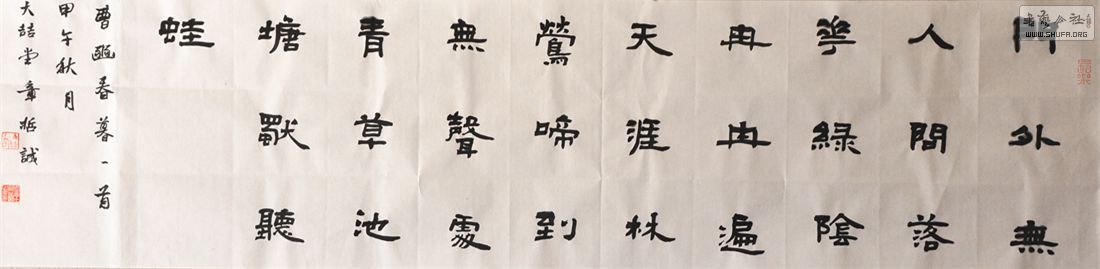 門外無
人問落
花綠陰
冉冉遍
天涯林
鶯啼到
無聲處
青草池
塘獨聽
蛙
曹豳春暮一首
甲午秋月
大喆堂章誠
书法公社
WWW.SHUFA.ORG